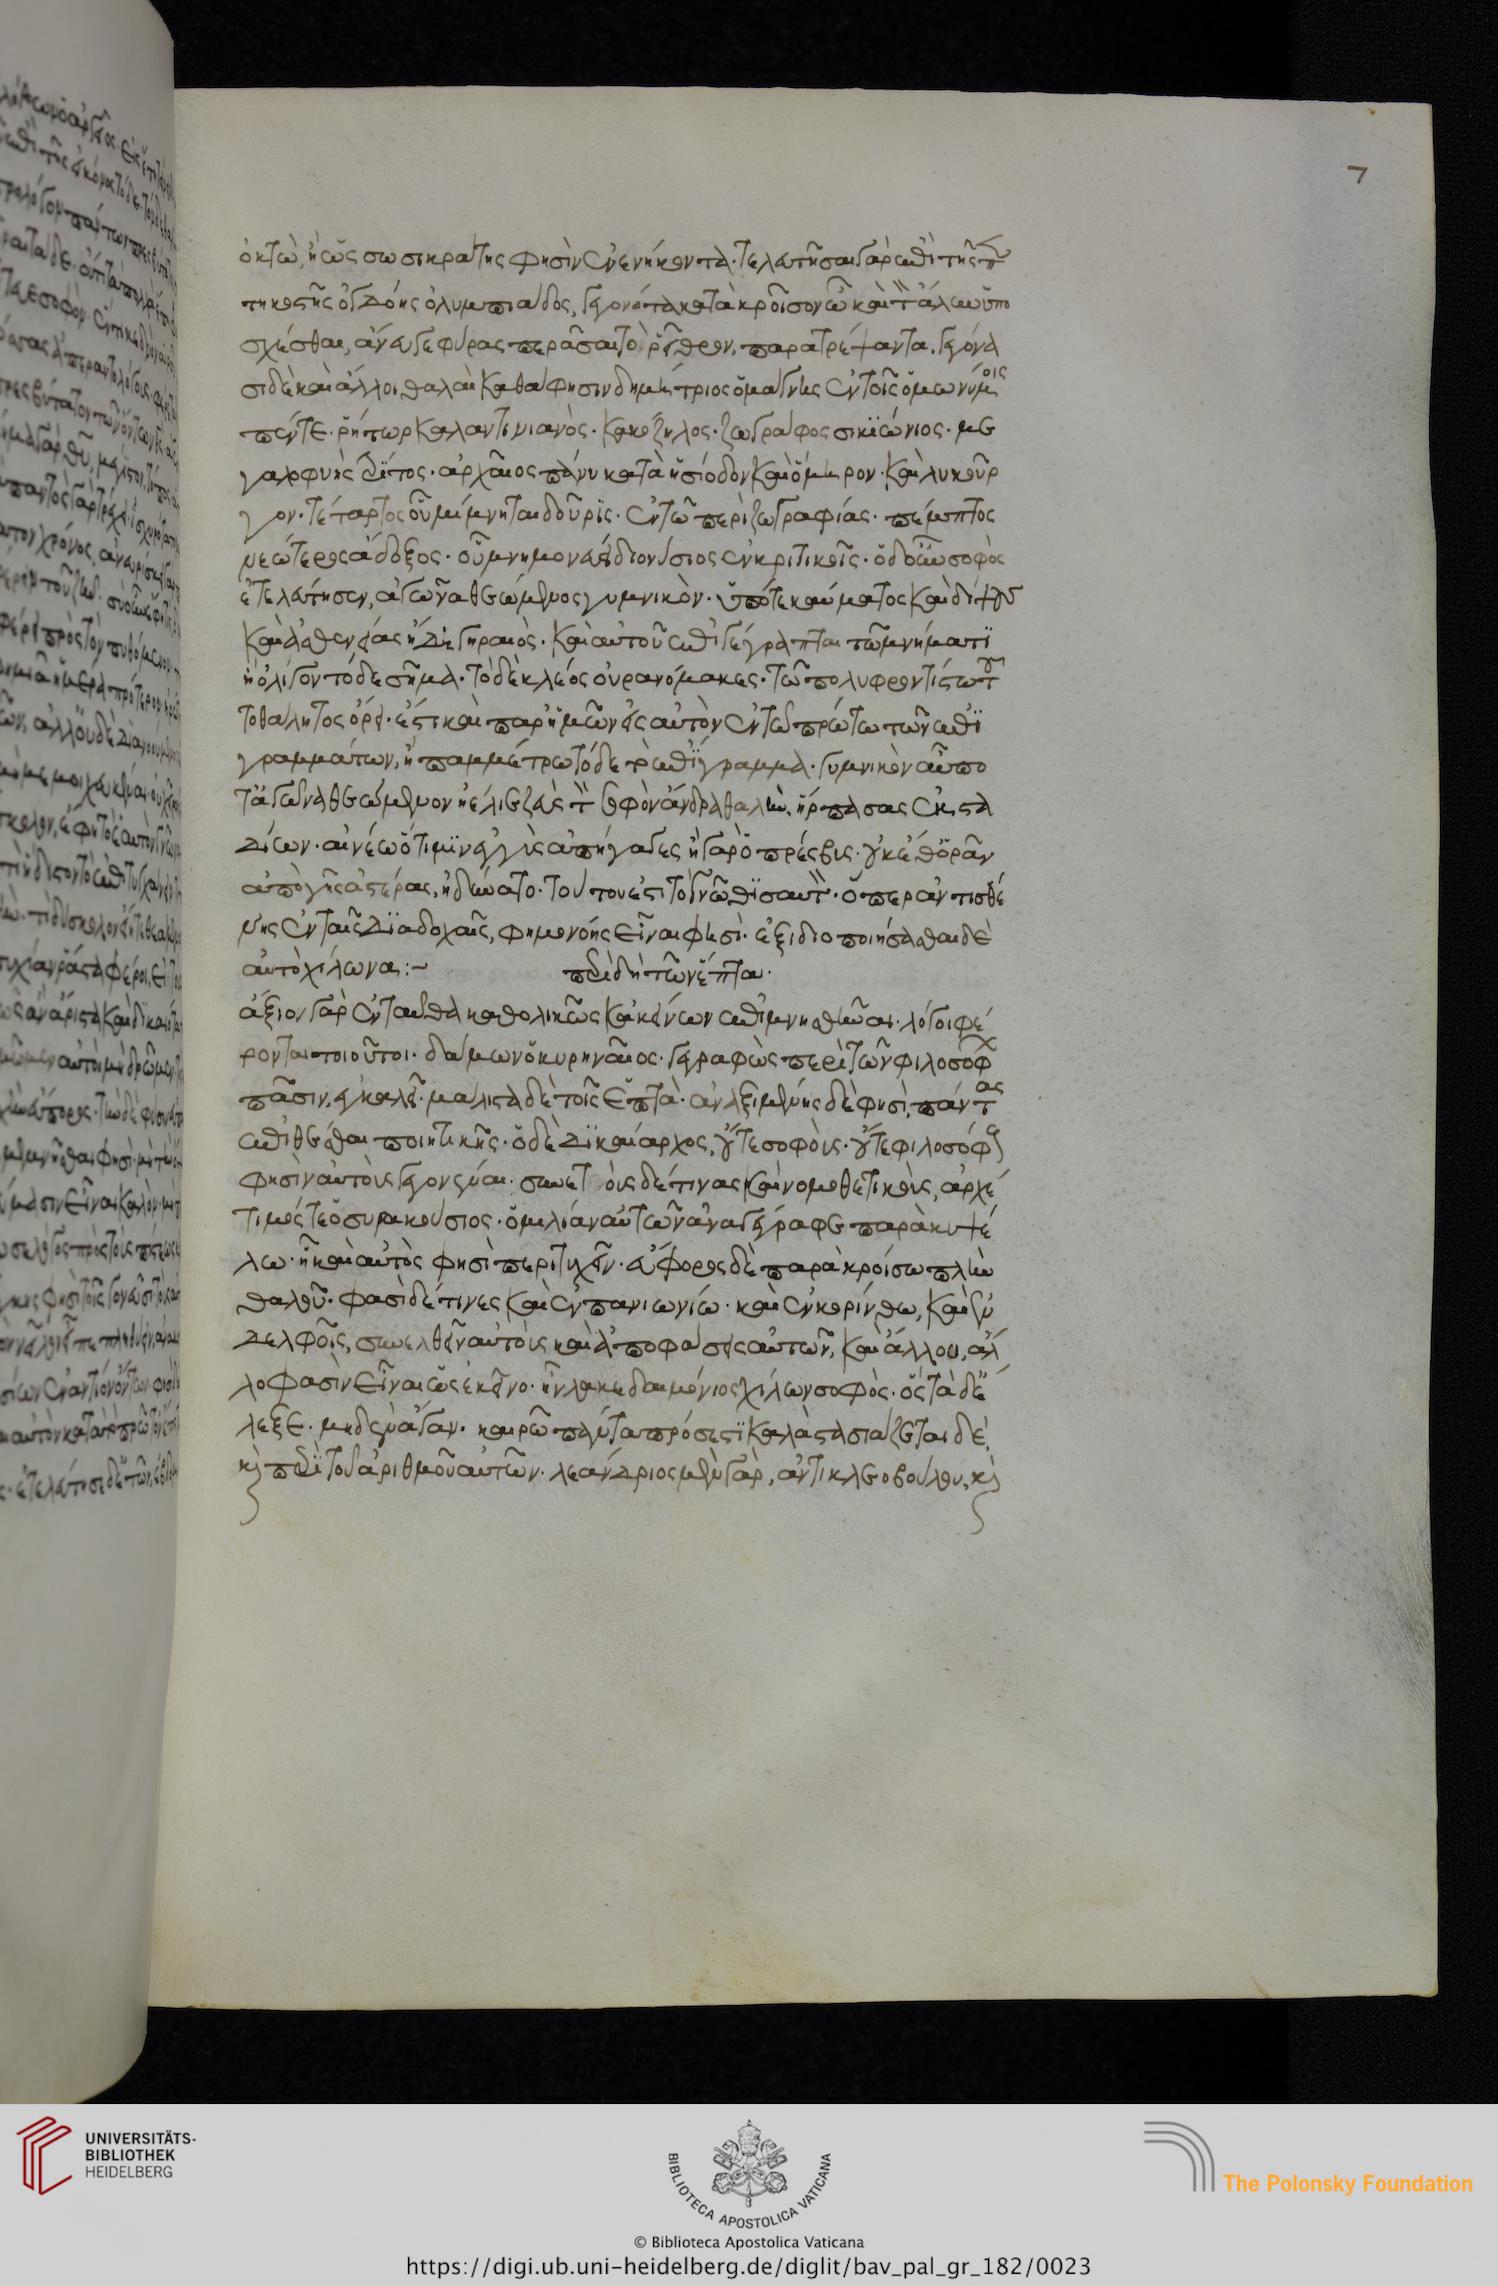 7
ὀκτώ, ἢ ὡς σωσικράτης φησὶν ἐνενήκοντα· τελευτῆσαι γὰρ ἐπὶ τῆς πεν
τηκοστῆς ὀγδόης ὀλυμπιάδος, γεγονότα κατὰ κροῖσον ὧ καὶ τὸν ἅλυν ὑπο
σχέσθαι, ἄνευ γεφύρας περᾶσαι τὸ ῥεῖθρον, παρατρέψαντα. γεγόνα
σι δὲ καὶ ἄλλοι θαλαῖ καθά φησιν δημήτριος ὁ μάγνης ἐν τοῖς ὁμωνύμοις
πέντε. ῥήτωρ καλαντινιανὸς· κακόζηλος· ζωγράφος σικιώνιος· με
γαλοφυὴς τρίτος· ἀρχαῖος πάνυ κατὰ ἡσίοδον καὶ ὅμηρον· καὶ λυκοῦρ
γον· τέταρτος οὗ μέμνηται δοῦρις· ἐν τῶ περὶ ζωγραφίας· πέμπτος
νεώτερος ἄδοξος· οὗ μνημονεύει διονύσιος ἐν κριτικοῖς· ὁ δ' οὖν σοφὸς
ἐτελεύτησεν, ἀγῶνα θεώμενος γυμνικὸν· ὑπό τε καύματος καὶ δίψους
καὶ ἀσθενείας ἤδη γηραιὸς· καὶ αὐτοῦ ἐπιγέγραπται τῶ μνήματι
ἠ ὀλίγον τόδε σῆμα· τὸ δὲ κλέος οὐρανόμακες· τῶ πολυφροντίστω του
το θάλητος ὅρει· ἔστι καὶ παρ' ἡμῶν εἰς αὐτὸν ἐν τῶ πρώτω τῶν ἐπι
γραμμάτων, ἢ παμμέτρω τόδε τὸ ἐπίγραμμα· γυμνικὸν αὖ πο
τ' ἀγῶνα θεώμενον ἠέλιε ζεῦ τὸν σοφὸν ἄνδρα θαλῆν ἥρπασας ἐκ στα
δίων· αἰνέω ὅτι μιν ἐγγὺς ἀπήγαγες ἢ γὰρ ὁ πρέσβις· οὐκ ἔθ' ὁρᾶν
ἀπὸ γῆς ἀστέρας, ἠδύνατο· τούτου ἐστὶ τὸ γνῶθι σαυτὸν· ὅπερ ἀντισθέ
νης ἐν ταῖς διαδοχαῖς, φημονόης εἶναι φησὶ· ἐξιδιοποιήσασθαι δὲ
αὐτὸ χίλωνα:~ περὶ δὴ τῶν ἑπτά·
ἄξιον γὰρ ἐνταῦθα καθολικῶς κἀκείνων ἐπιμνησθῆναι· λόγοι φέ
ρονται τοιοῦτοι· δάμων ὁ κυρηναῖος· γεγραφὼς περὶ τῶν φιλοσόφων
πᾶσιν, ἐγκαλεῖ· μάλιστα δὲ τοῖς ἑπτά· ἀναξιμένης δέ φησὶ, πάντας
ἐπιθέσθαι ποιητικῆς· ὁ δὲ δικαίαρχος, οὔτε σοφοὺς· οὔτε φιλοσόφους
φησὶν αὐτοὺς γεγονέναι· συνετοὺς δέ τινας καὶ νομοθετικοὺς, ἀρχέ
τιμός τε ὁ συρακούσιος· ὁμιλίαν αὐτῶν ἀναγέγραφε παρὰ κυψέ
λω· ἧ καὶ αὐτὸς φησὶ περιτυχεῖν· ἔφορος δὲ παρὰ κροίσω πλὴν
θαλοῦ· φασὶ δέ τινες καὶ ἐν πανιωνίω· καὶ ἐν κορίνθω, καὶ ἐν
δελφοῖς, συνελθεῖν αὐτοὺς καὶ ἀποφάσεις αὐτῶν, καὶ ἄλλου, ἄλ
λο φασὶν εἶναι ὡς ἐκεῖνο· ἦν λακεδαιμόνιος χίλων σοφὸς· ὃς τάδε ἔ
λεξε· μηδὲν ἄγαν· καιρῶ πάντα πρόσεστι καλά στασιάζεται δὲ,
καὶ περὶ τοῦ ἀριθμοῦ αὐτῶν· λεάνδριος μὲν γὰρ, ἀντὶ κλεοβούλου, καὶ
UNIVERSITÄTS-
BIBLIOTHEK
HEIDELBERG
BIBLIOTECA APOSTOLICA VATICANA
The Polonsky Foundation
© Biblioteca Apostolica Vaticana
https://digi.ub.uni-heidelberg.de/diglit/bav_pal_gr_182/0023